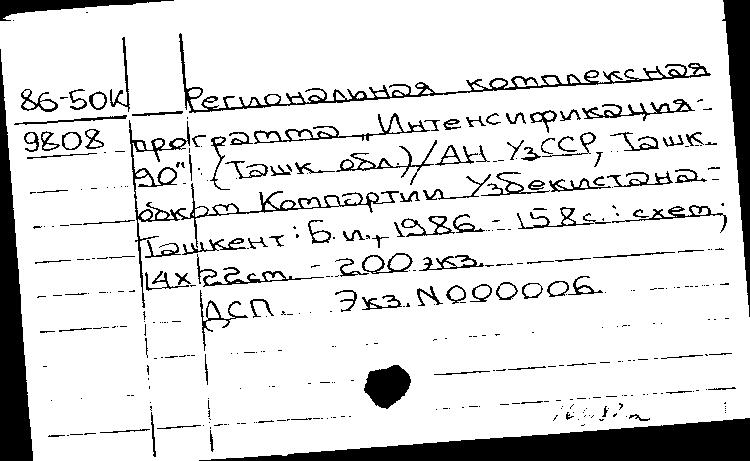 86-50К Региональная комплексная
9808 программа „Интенсификация-
90" : (Ташк. обл.) / АН УзССР, Ташк.
обком Компартии Узбекистана.-
Ташкент: Б.и., 1986. - 158с.: схем;
14х22ст. - 200экз.
ДСП. Экз.N000006.